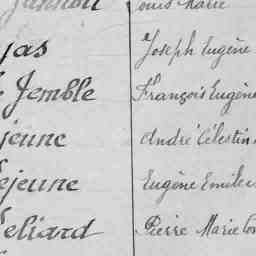 Louis Marie
jas Joseph Eugène
Jemble François Eugène
jeune André Célestin
ejeune Eugène Emile
eliard Pierre Marie